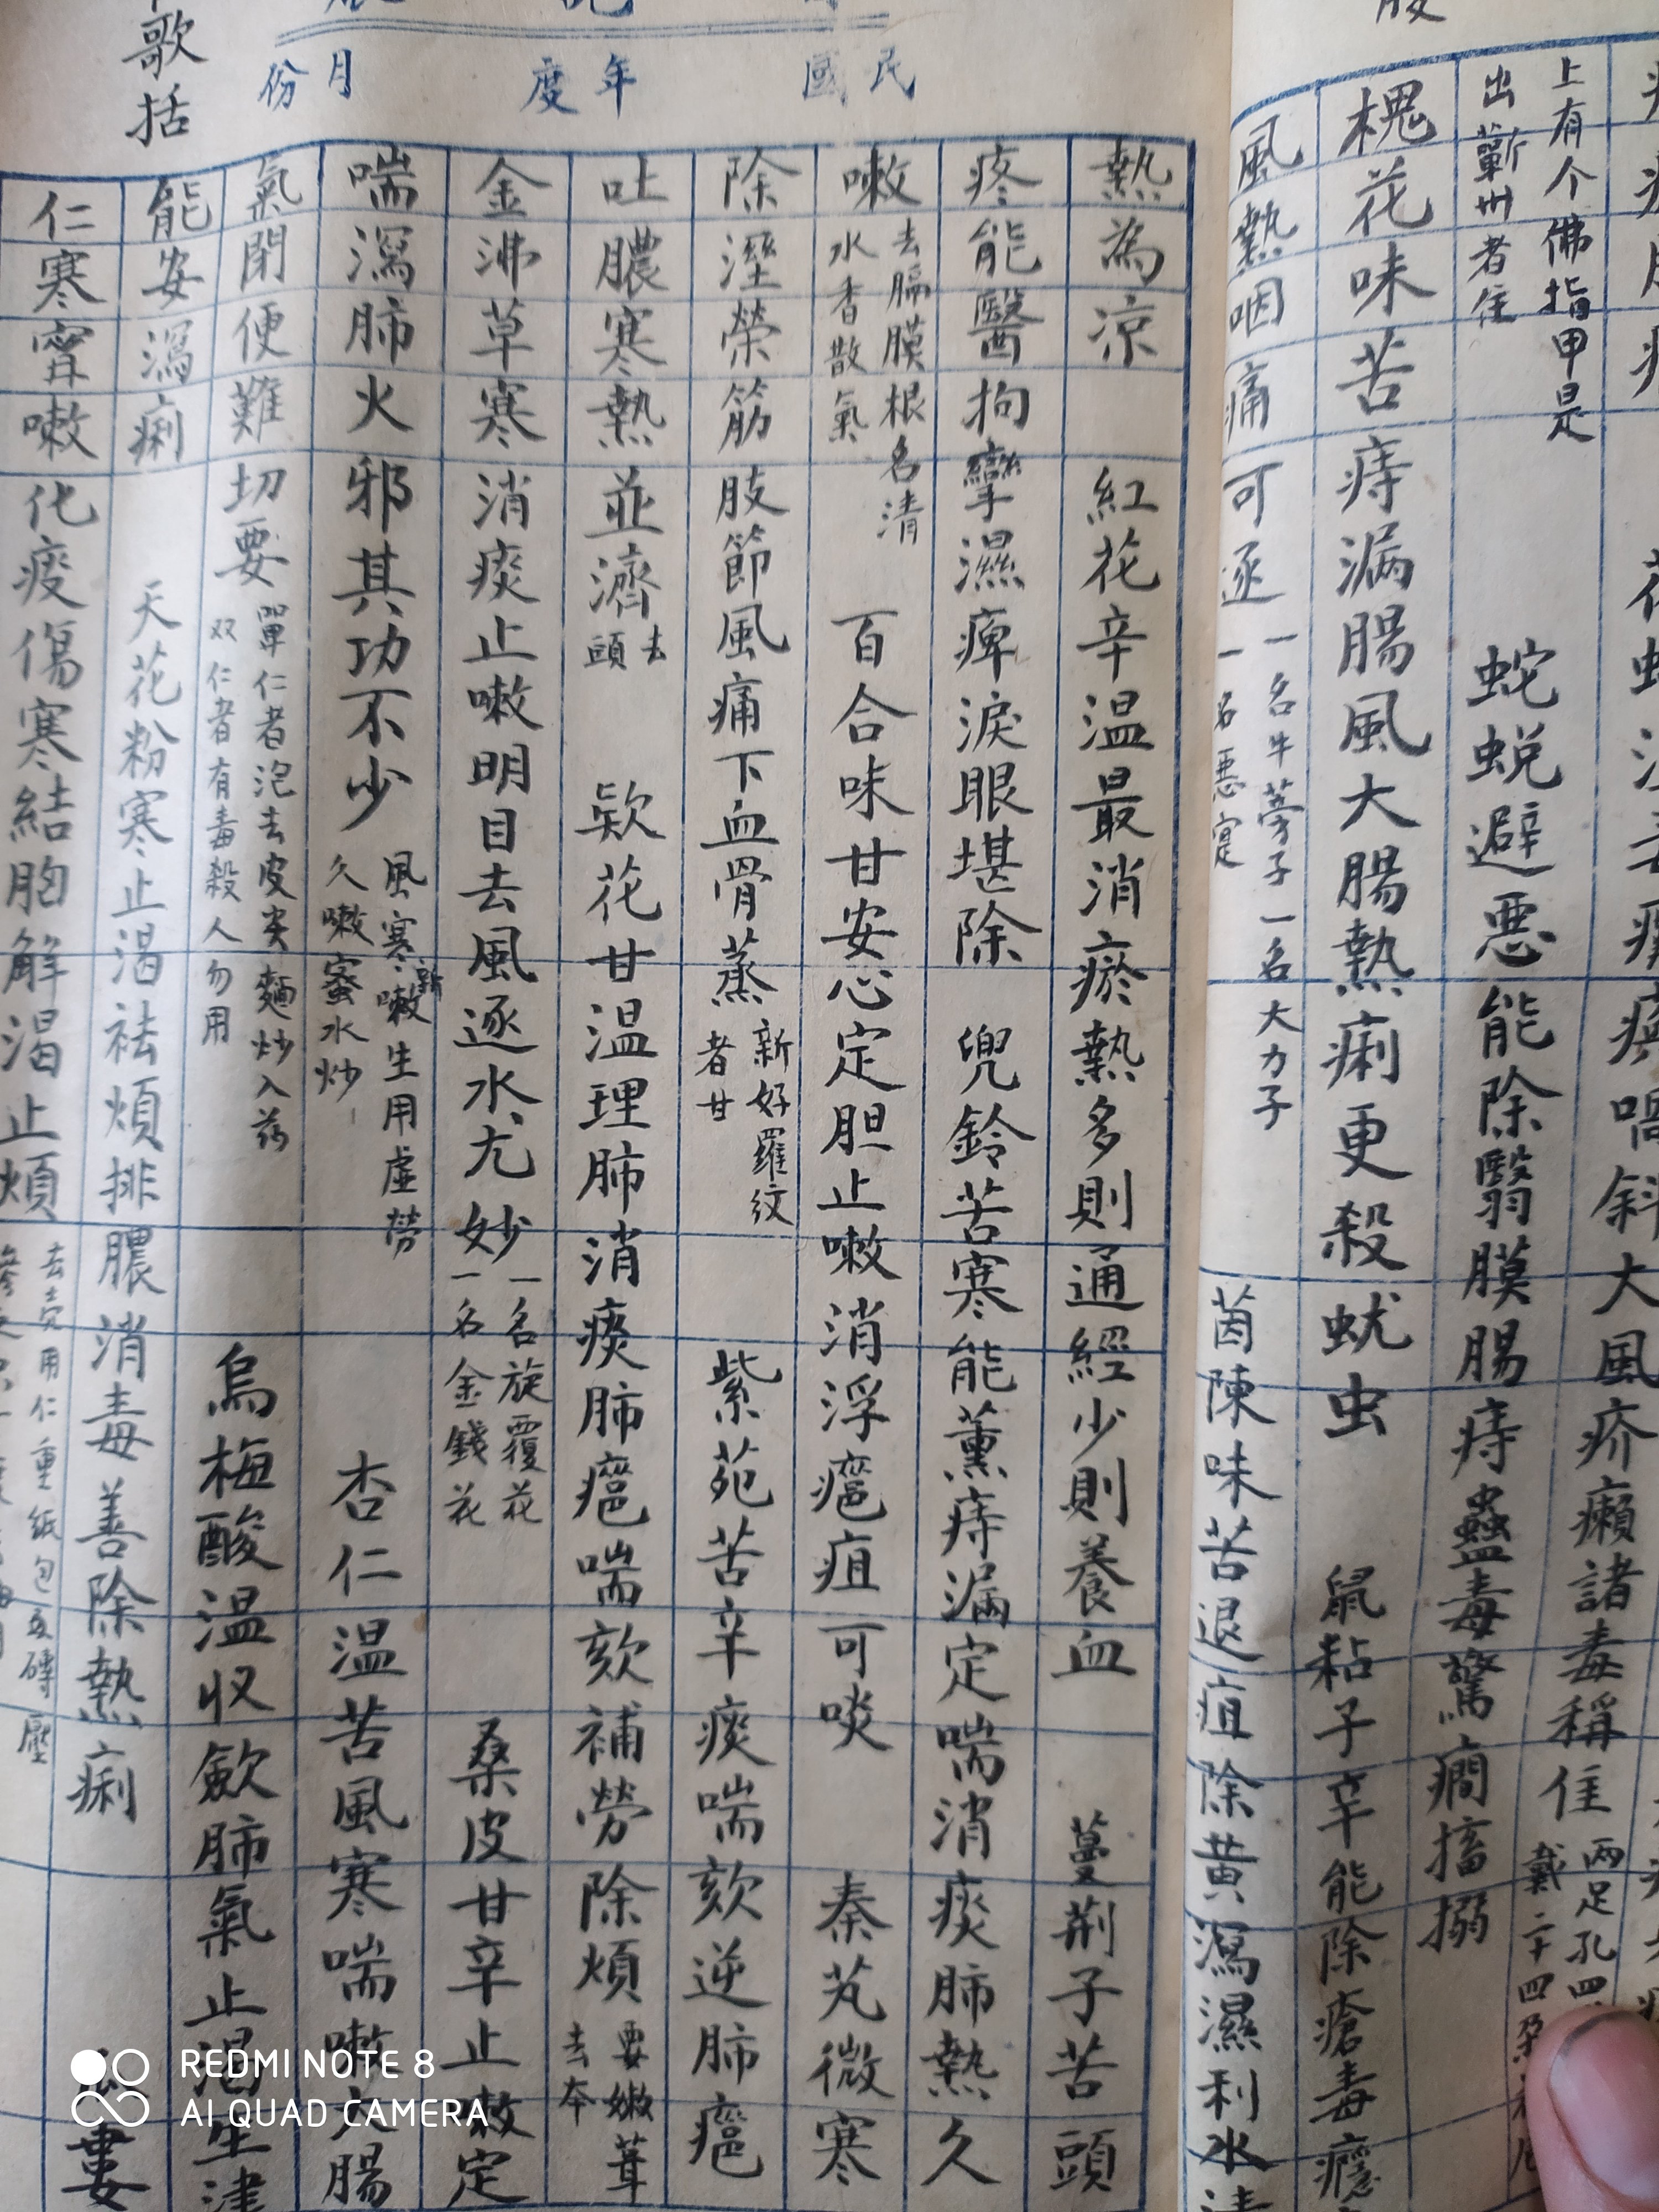 上有个佛指甲是
出蘄州者佳
蛇蜕避惡能除翳膜腸痔蠱毒驚癇搐搦
槐花味苦痔漏腸風大腸熱痢更殺蚘虫
鼠粘子辛能除瘡毒癮
風熱咽痛可逐
一名牛蒡子一名大力子
一名惡寔
茵陳味苦退疸除黄瀉濕利水清
歌括
民國 年度 月份
熱為凉
紅花辛温最消瘀熱多則通經少則養血
蔓荆子苦頭
疼能醫拘攣濕痺淚眼堪除
兜鈴苦寒能薰痔漏定喘消痰肺熱久
嗽
去膈膜根名清
水香散氣
百合味甘安心定胆止嗽消浮癰疽可啖
秦艽微寒
除溼榮筋肢節風痛下血骨蒸
新好羅紋
者廿
紫苑苦辛痰喘欬逆肺癰
吐膿寒熱並濟
去頭
欵花甘温理肺消痰肺癰喘欬補勞除煩
要嫩茸
去夲
金沸草寒消痰止嗽明目去風逐水尤妙
一名旋覆花
一名金錢花
桑皮甘辛止嗽定
喘瀉肺火邪其功不少
風寒新嗽生用虛勞
久嗽蜜水炒
杏仁温苦風寒喘嗽大腸
氣閉便難切要
單仁者泡去皮尖麵炒入药
双仁者有毒殺人勿用
烏梅酸温收歛肺氣止渴生津
能安瀉痢
天花粉寒止渴祛煩排膿消毒善除熱痢
瓜蔞
仁寒寧嗽化痰傷寒結胸解渴止煩
去壳用仁重紙包瓦磚壓